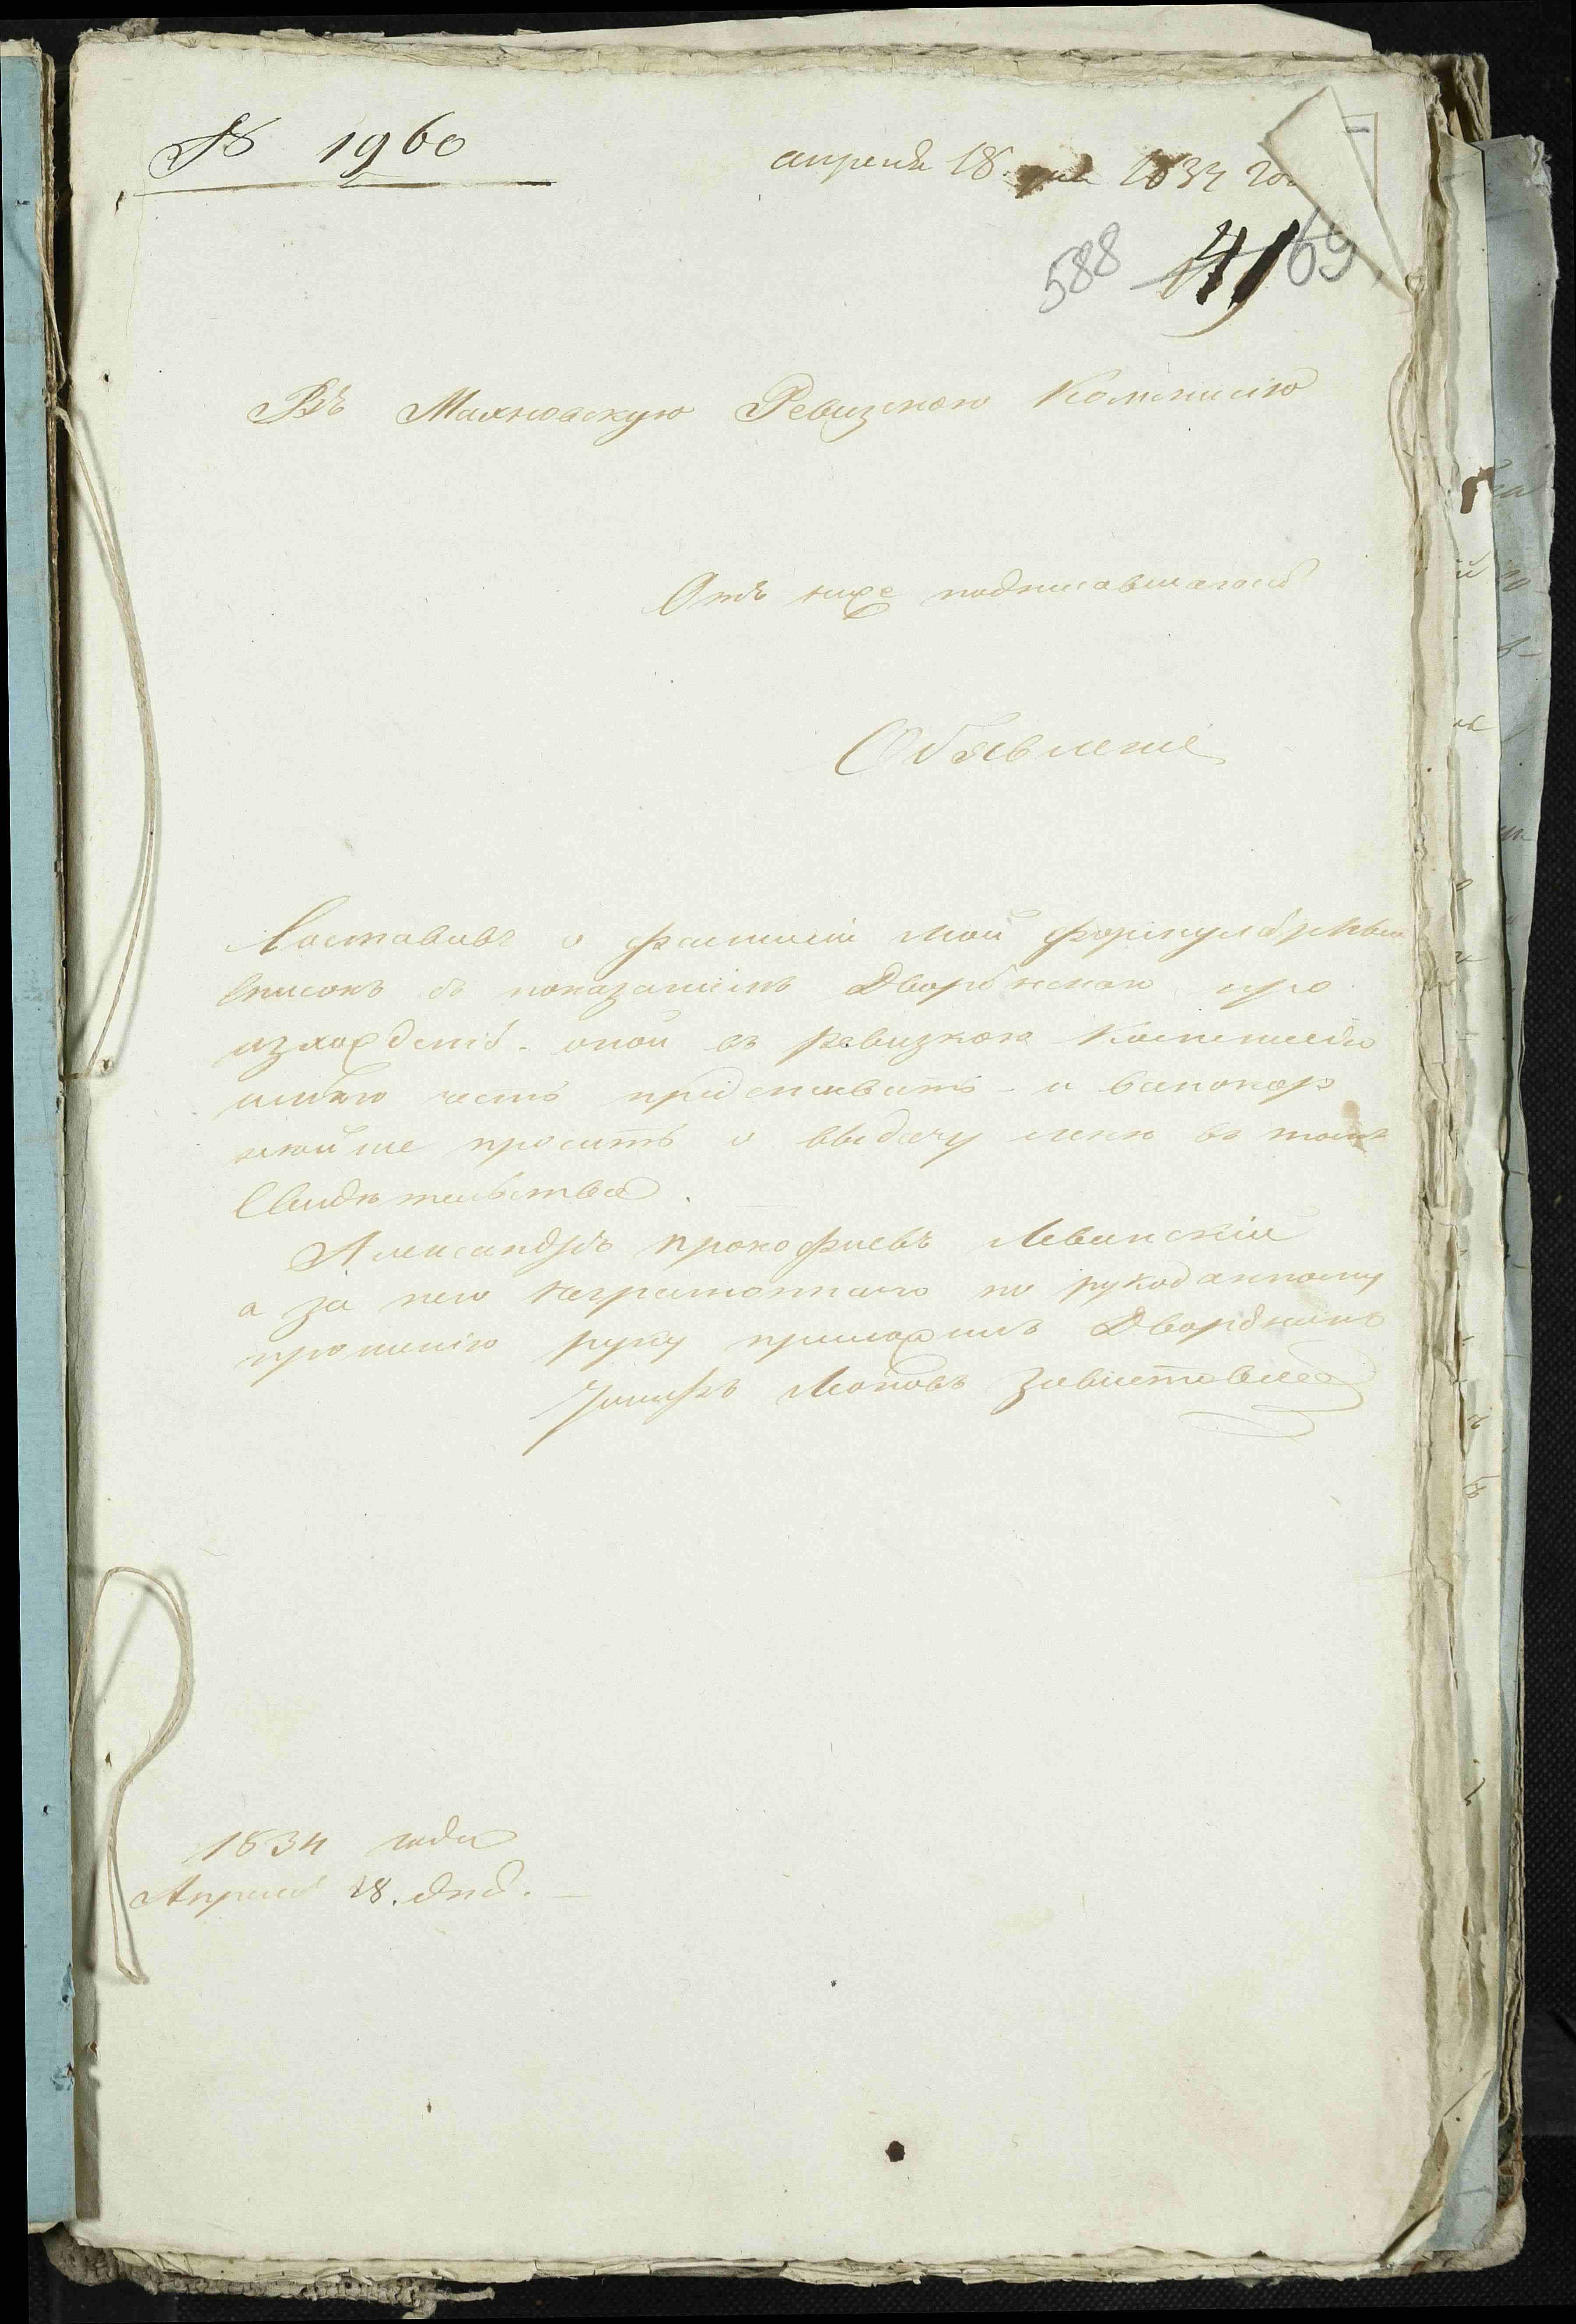 № 1960
апреля 18. дня 1834 года
588 41 69
Въ Махновскую Ревизскою Коммисію
Отъ ниже подписавшагося
Объявленіе
Составивъ о фамиліи моей формулярный
списокъ съ показаніемъ Дворянскаго про
изхожденія. оной въ ревизкою Коммисію
имѣю честь представить - и всепокор
нѣйше просить о выдачу мене въ томъ
Свидѣтельства.
Александръ Прокофиевъ Леванскій
а за него неграмотнаго по рукоданному
прошенію руку приложилъ Дворянинъ
Леоновъ
1834 года
Апреля 18. дня.